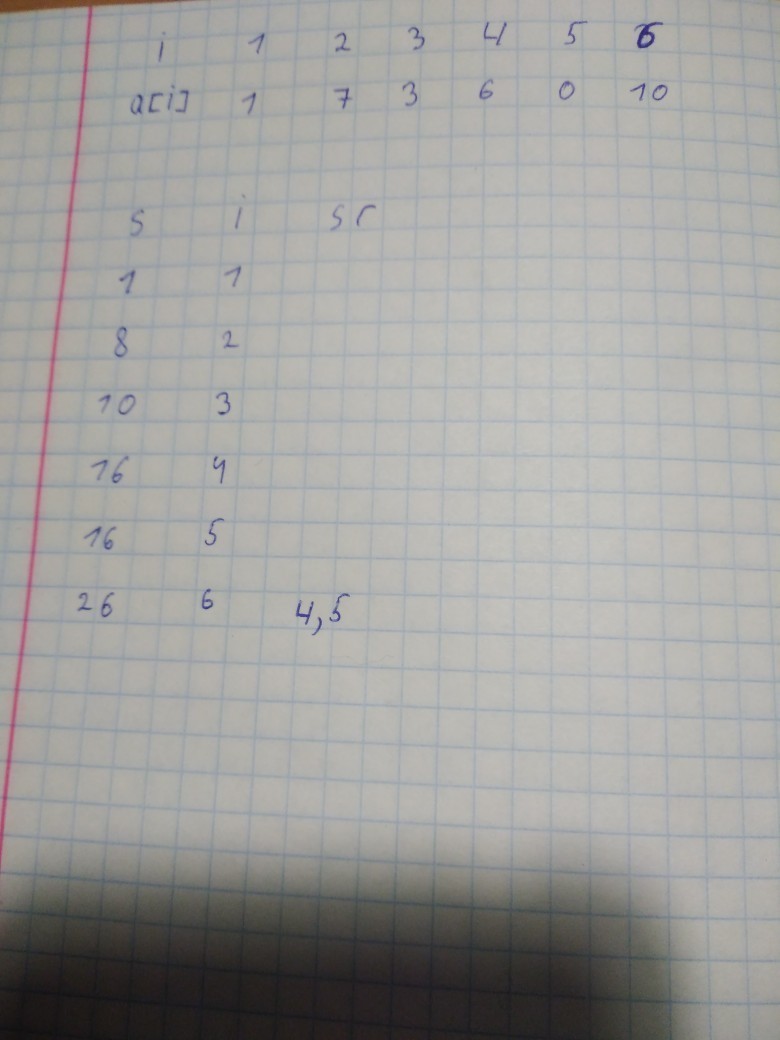 i 1 2 3 4 5 6
a[i] 1 7 3 6 0 10
s i sr
1 1
8 2
10 3
16 4
16 5
26 6 4,5